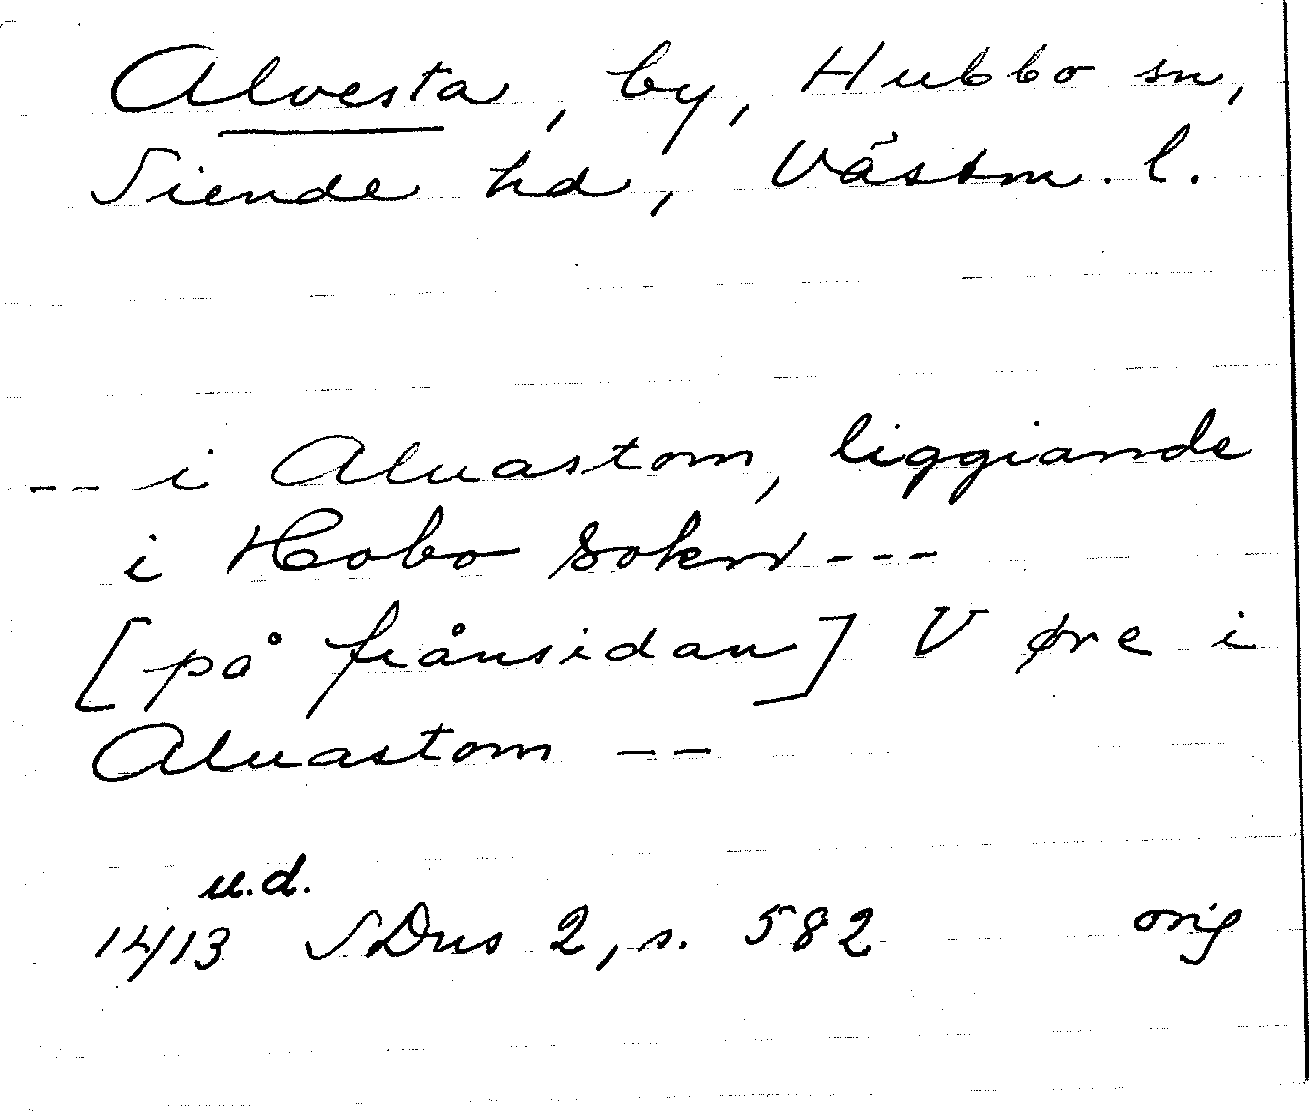 Alvesta, by, Hubbo sn,
Siende hd, Västm. l.
-- i Aluastom, liggiande
i Hobo sokn ---
[på frånsidan] V øre i
Aluastom --
u.d.
1413 SDns 2, s. 582 orig